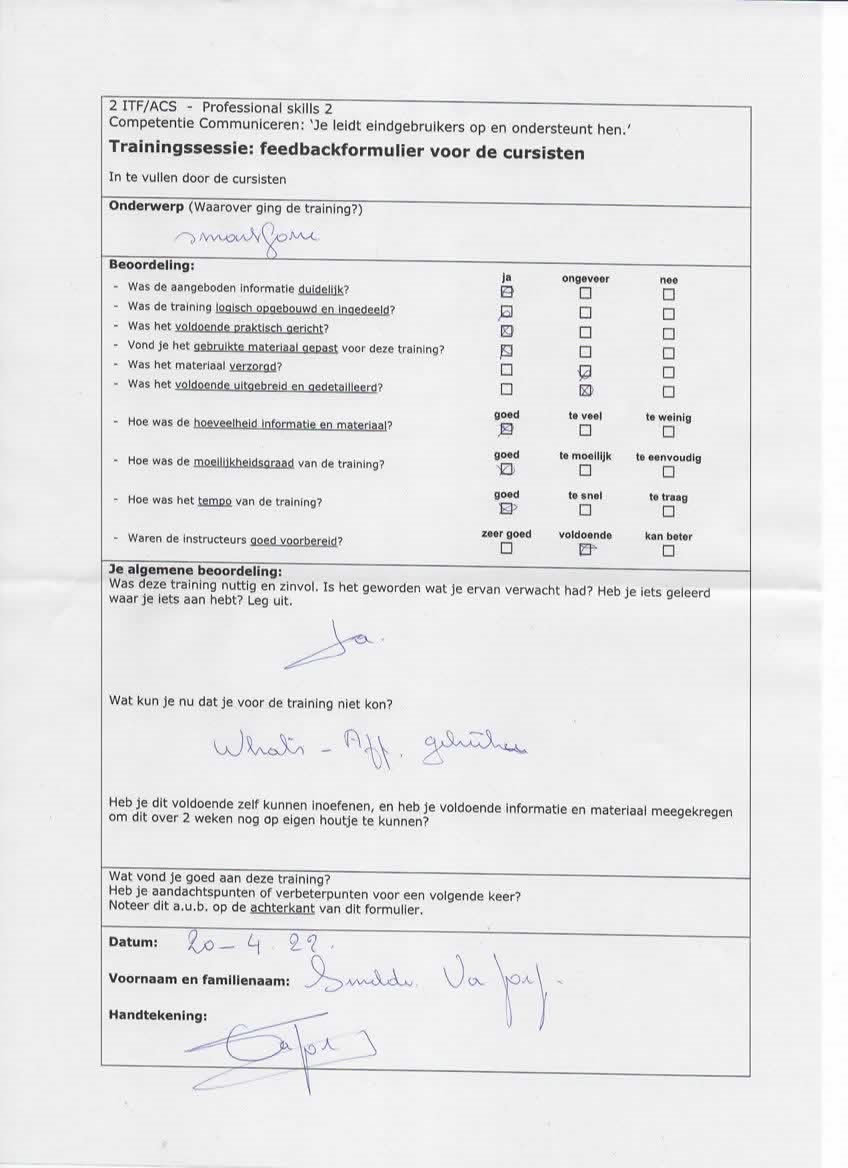 2 ITF/ACS - Professional skills 2
Competentie Communiceren: 'Je leidt eindgebruikers op en ondersteunt hen.'
Trainingssessie: feedbackformulier voor de cursisten
In te vullen door de cursisten
Onderwerp (Waarover ging de training?)
Beoordeling:
ja ongeveer nee
- Was de aangeboden informatie duidelijk?
- Was de training logisch opgebouwd en ingedeeld?
- Was het voldoende praktisch gericht?
- Vond je het gebruikte materiaal gepast voor deze training?
- Was het materiaal verzorgd?
- Was het voldoende uitgebreid en gedetailleerd?
goed te veel te weinig
- Hoe was de hoeveelheid informatie en materiaal?
goed te moeilijk te eenvoudig
- Hoe was de moeilijkheidsgraad van de training?
goed te snel te traag
- Hoe was het tempo van de training?
zeer goed voldoende kan beter
- Waren de instructeurs goed voorbereid?
Je algemene beoordeling:
Was deze training nuttig en zinvol. Is het geworden wat je ervan verwacht had? Heb je iets geleerd
waar je iets aan hebt? Leg uit.
Ja.
Wat kun je nu dat je voor de training niet kon?
What's - App.
Heb je dit voldoende zelf kunnen inoefenen, en heb je voldoende informatie en materiaal meegekregen
om dit over 2 weken nog op eigen houtje te kunnen?
Wat vond je goed aan deze training?
Heb je aandachtspunten of verbeterpunten voor een volgende keer?
Noteer dit a.u.b. op de achterkant van dit formulier.
Datum: 20-4.22.
Voornaam en familienaam:
Handtekening: